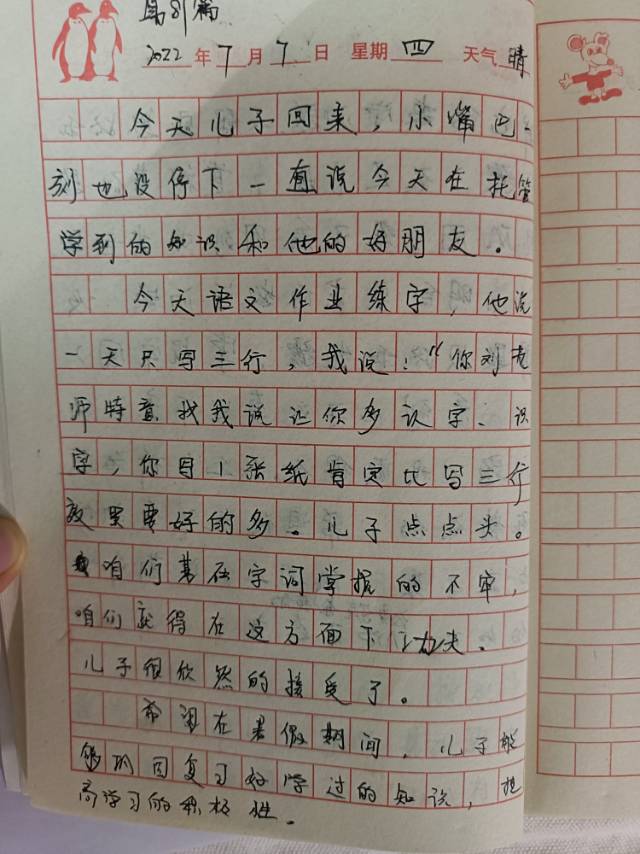 2022年7月7日 星期四 天气晴
今天儿子回来，小嘴巴一
刻也没停下一直说今天在托管
学到的知识和他的好朋友。
今天语文作业练字，他说
一天只写三行，我说：“你刘老
师特意找我说让你多认字、识
字，你写1张纸肯定比写三行
效果要好的多。儿子点点头。
咱们基在字词掌握的不牢，
咱们就得在这方面下功夫、
儿子很欣然的接受了。
希望在暑假期间，儿子能
够巩固复习好学过的知识，提
高学习的积极性．